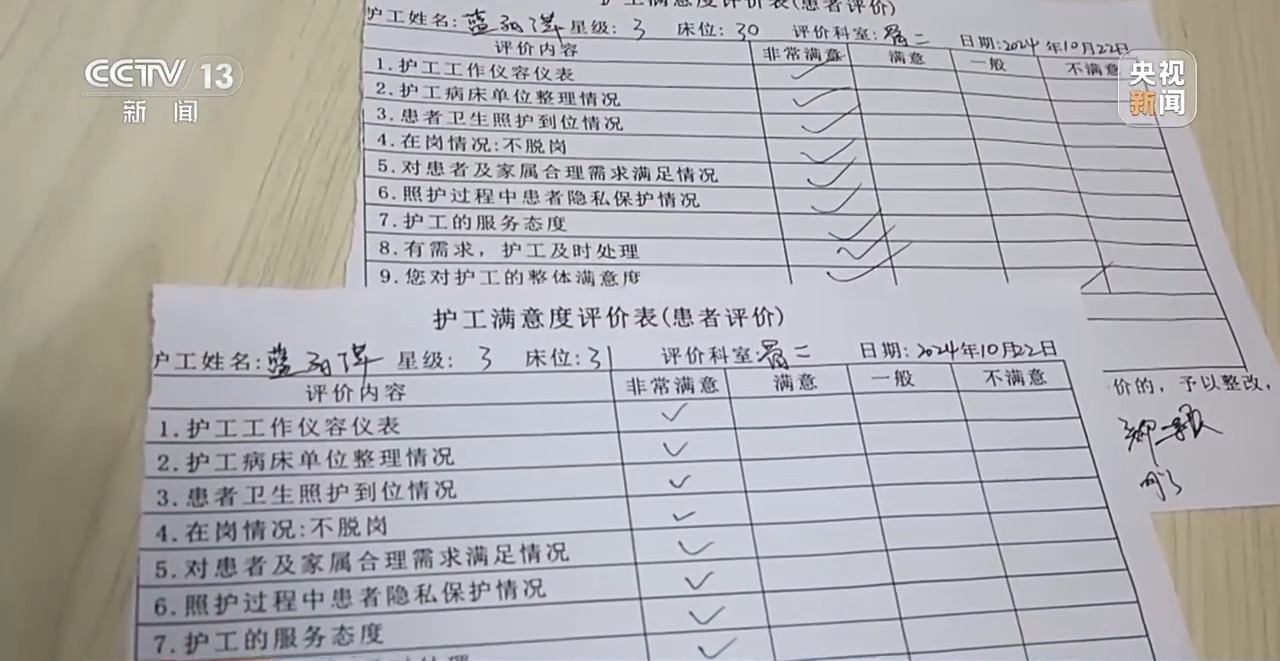 护工满意度评价表(患者评价)
护工姓名: 蓝 星级: 3 床位: 30 评价科室: 胃二 日期: 2024年10月22日
评价内容 非常满意 满意 一般 不满意
1.护工工作仪容仪表
2.护工病床单位整理情况
3.患者卫生照护到位情况
4.在岗情况:不脱岗
5.对患者及家属合理需求满足情况
6.照护过程中患者隐私保护情况
7.护工的服务态度
8.有需求，护工及时处理
9.您对护工的整体满意度
CCTV 13
新闻
央视
新闻
护工满意度评价表(患者评价)
护工姓名: 蓝 星级: 3 床位: 31 评价科室: 胃二 日期: 2024年10月22日
评价内容 非常满意 满意 一般 不满意
1.护工工作仪容仪表
2.护工病床单位整理情况
3.患者卫生照护到位情况
4.在岗情况:不脱岗
5.对患者及家属合理需求满足情况
6.照护过程中患者隐私保护情况
7.护工的服务态度
价的，予以整改，